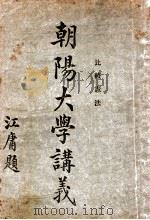 比較憲法
朝陽大學講義
江庸題